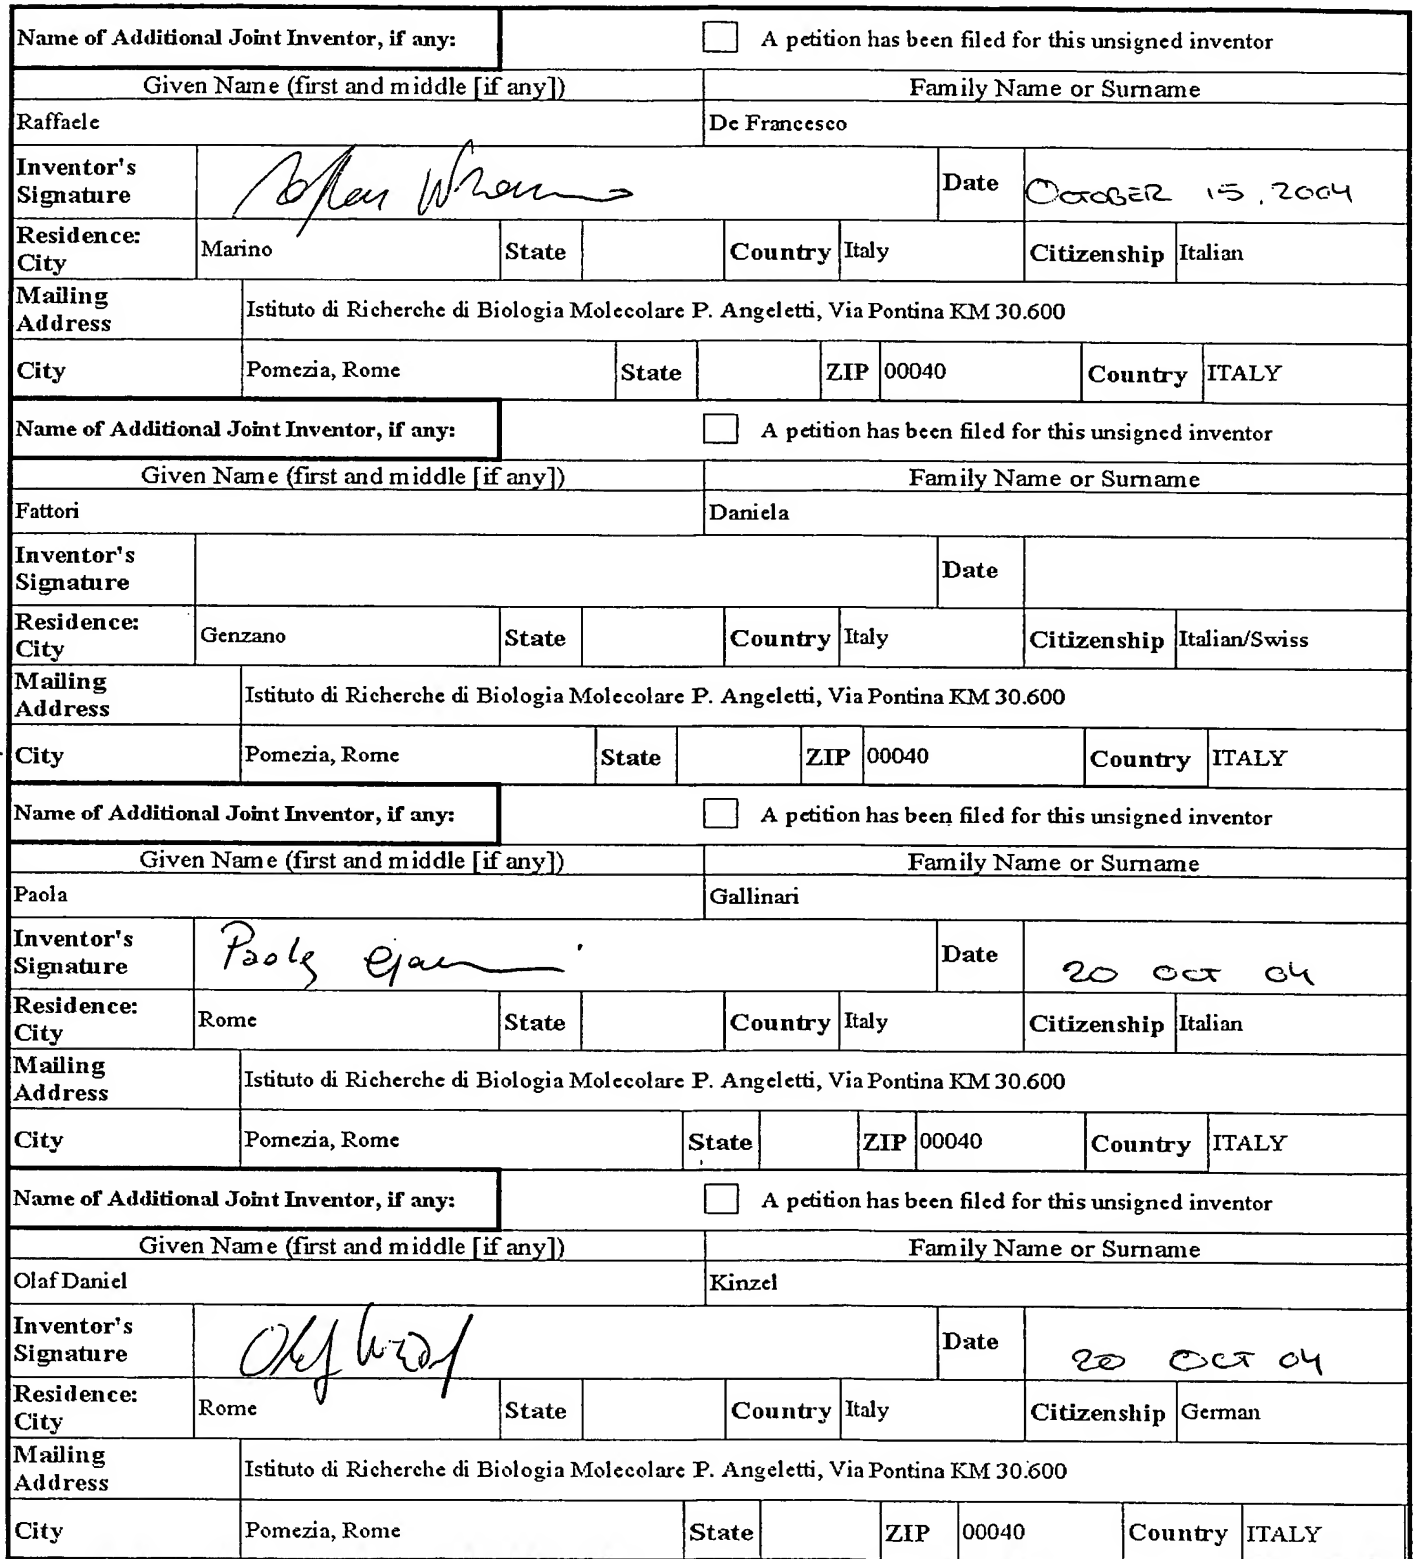 Name of Additional Joint Inventor, if any: A petition has been filed for this unsigned inventor
Given Name (first and middle [if any]) Family Name or Surname
Raffaele De Francesco
Inventor's Signature Date OCTOBER 15, 2004
Residence: City Marino State Country Italy Citizenship Italian
Mailing Address Istituto di Richerche di Biologia Molecolare P. Angeletti, Via Pontina KM 30.600
City Pomezia, Rome State ZIP 00040 Country ITALY
Name of Additional Joint Inventor, if any: A petition has been filed for this unsigned inventor
Given Name (first and middle [if any]) Family Name or Surname
Fattori Daniela
Inventor's Signature Date
Residence: City Genzano State Country Italy Citizenship Italian/Swiss
Mailing Address Istituto di Richerche di Biologia Molecolare P. Angeletti, Via Pontina KM 30.600
City Pomezia, Rome State ZIP 00040 Country ITALY
Name of Additional Joint Inventor, if any: A petition has been filed for this unsigned inventor
Given Name (first and middle [if any]) Family Name or Surname
Paola Gallinari
Inventor's Signature Paola Date 20 OCT 04
Residence: City Rome State Country Italy Citizenship Italian
Mailing Address Istituto di Richerche di Biologia Molecolare P. Angeletti, Via Pontina KM 30.600
City Pomezia, Rome State ZIP 00040 Country ITALY
Name of Additional Joint Inventor, if any: A petition has been filed for this unsigned inventor
Given Name (first and middle [if any]) Family Name or Surname
Olaf Daniel Kinzel
Inventor's Signature Olaf Date 20 OCT 04
Residence: City Rome State Country Italy Citizenship German
Mailing Address Istituto di Richerche di Biologia Molecolare P. Angeletti, Via Pontina KM 30.600
City Pomezia, Rome State ZIP 00040 Country ITALY